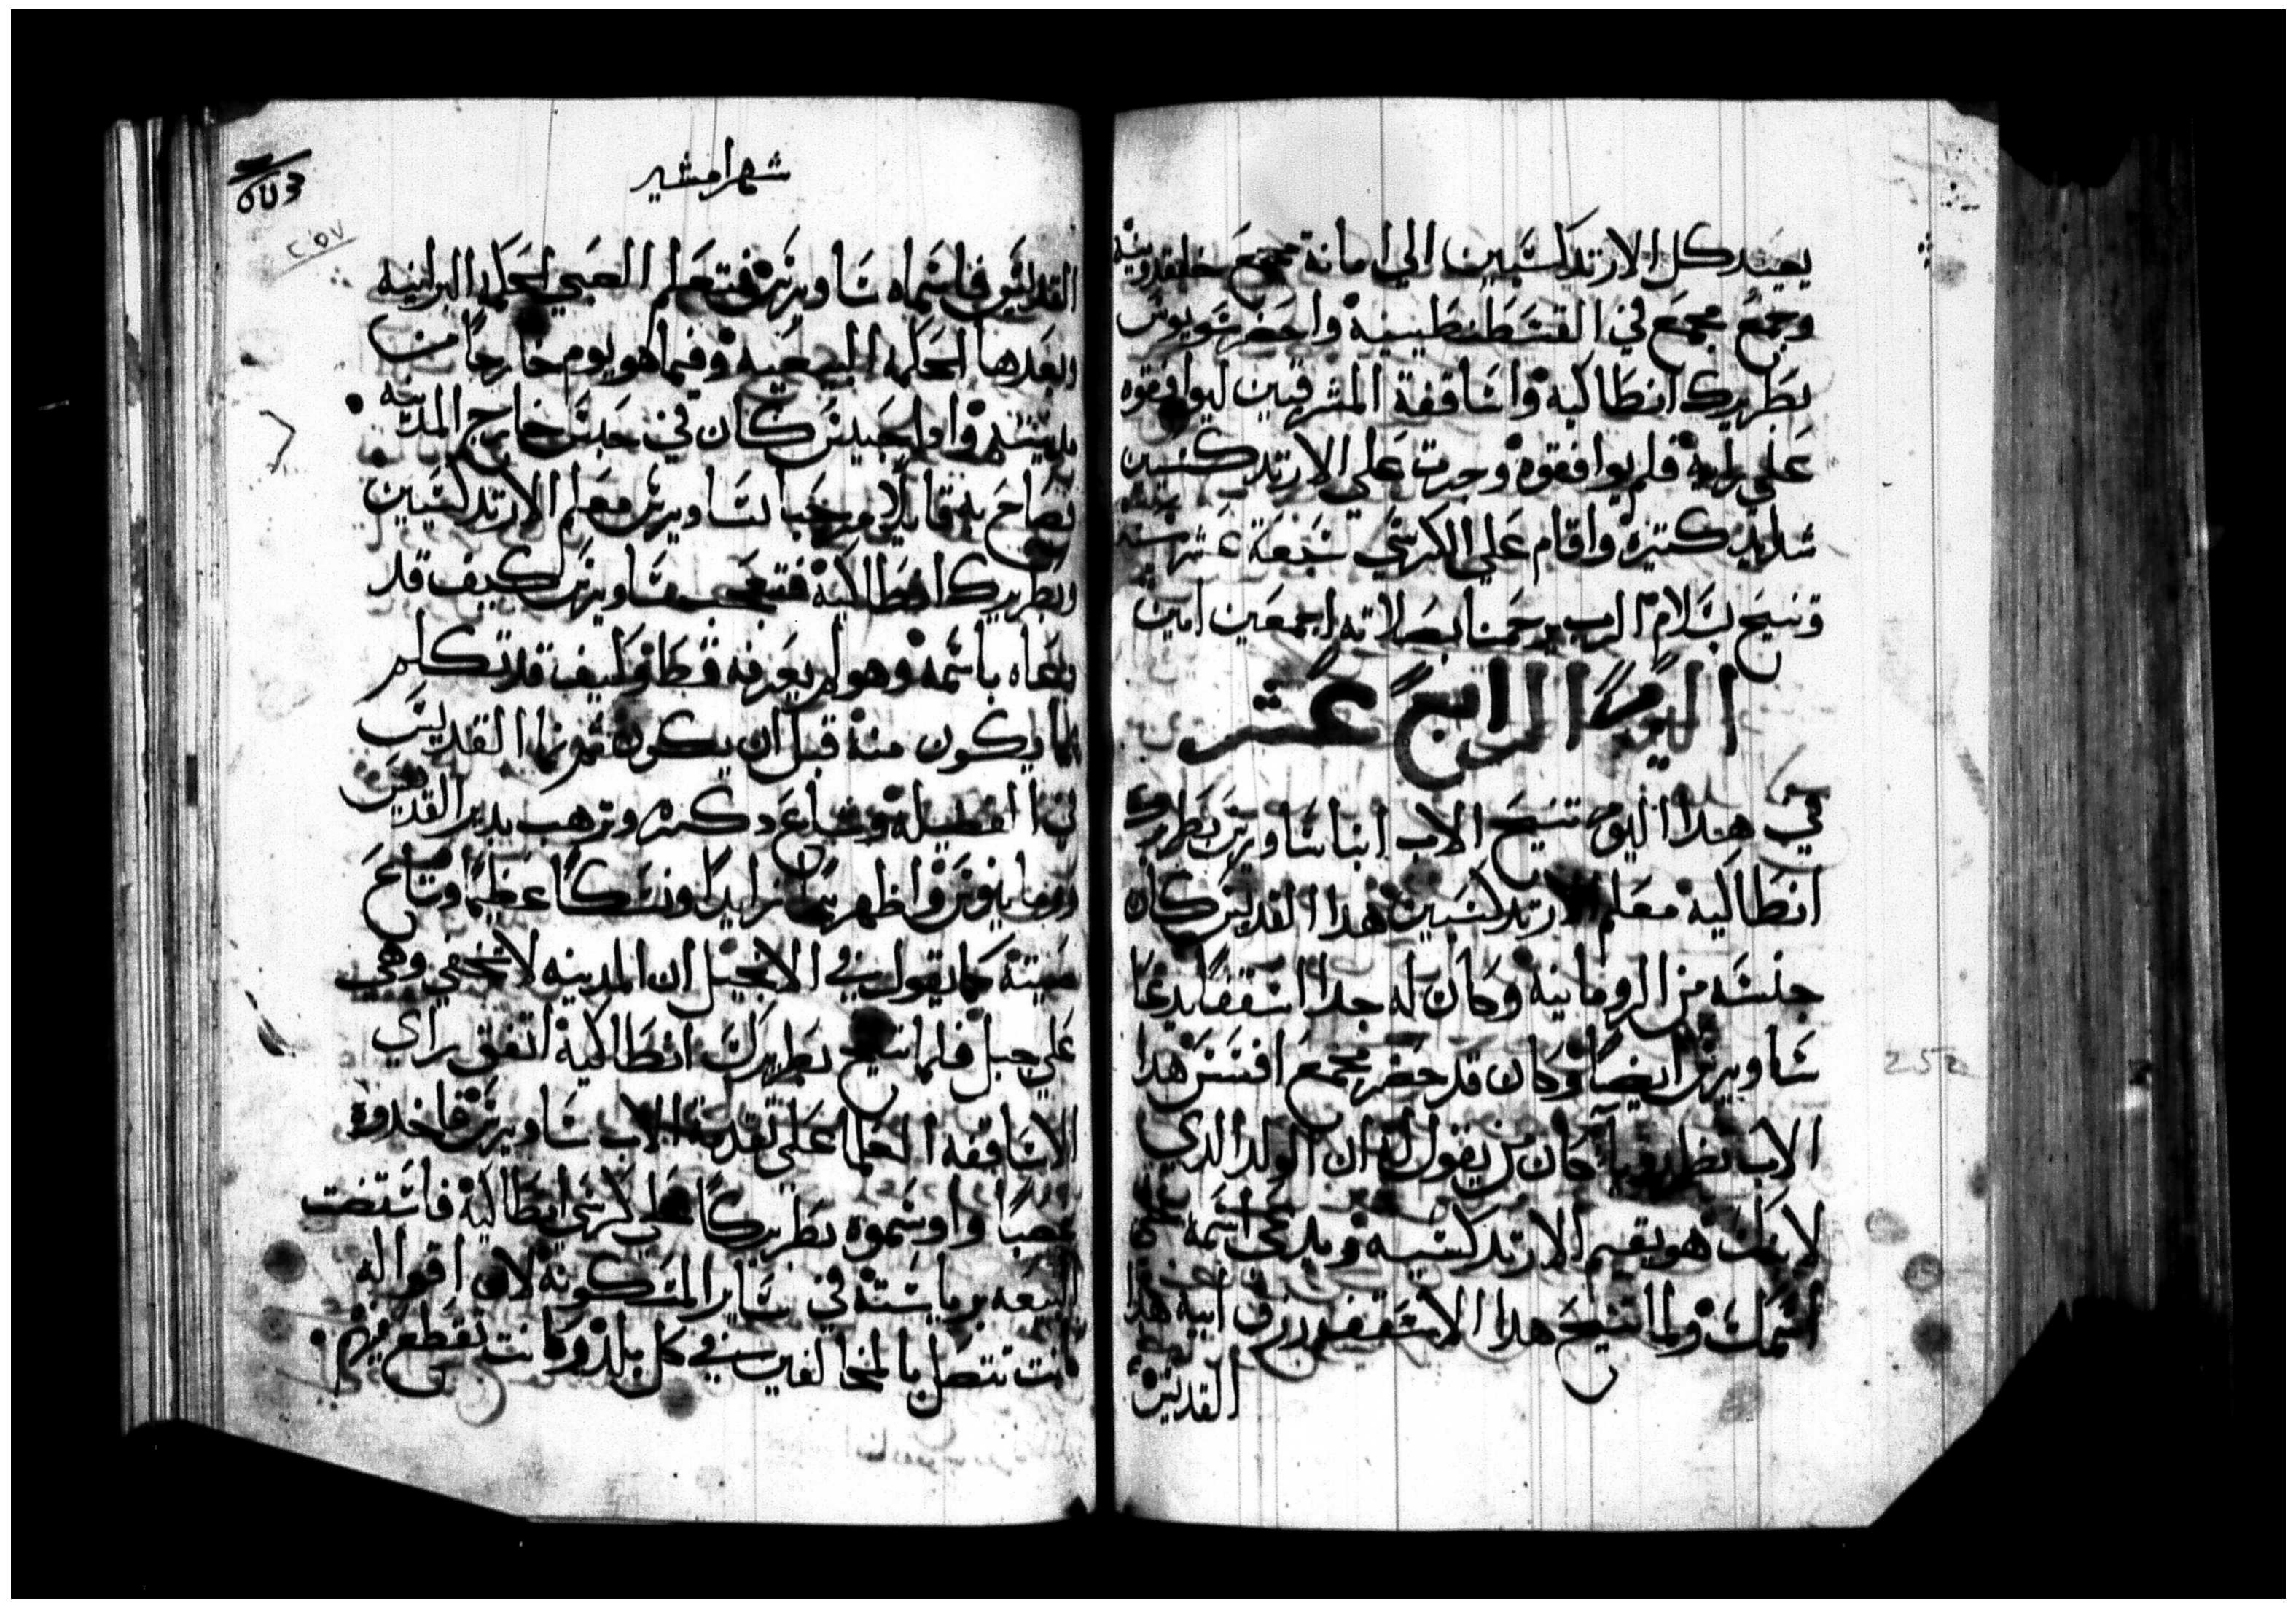 يعيد كل الارتدكسيين الي امانة مجمع خلقدونيه
وجمع مجمع في القسطنطينية واحضر ساويرس
بطريرك انطاكية واساقفة المشرقيين ليوافقوه
علي رايه فلم يوافقوه وجرت علي الارتدكسيين
شدايد كتيرة واقام علي الكرسي سبعة عشر سنه
وتنيح بسلام الرب يرحمنا بصلاته اجمعين امين
اليوم الرابع عشر
في هدا اليوم تنيح الاب انبا ساويرس بطريرك
انطاكية معلم الارتدكسيين هدا القديس كان
جنسه من الرومانية وكان له جدا اسقفا يدعا
ساويرس ايضا وكان قد حضر مجمع افسس هدا
الاب نظر رويا كان من يقول له ان الولد الدي
لابنك هو يقيم الارتدكسيه ويدعي اسمه علي
اسمك ولما تنيح هدا الاسقف رزق ابيه هدا
القديس
شهر امشير
القديس فاسماه ساويرس فتعلم الصبي الحكمه البرانيه
وبعدها الحكمه البيعيه وفيما هو يوم خارجا من
مدينته وادا حبيس كان في حبس خارج المدينه
فصاح به قايلا مرحبا بساويرس معلم الارتدكسيين
وبطريرك انطاكية فتعجب ساويرس كيف قد
دعاه باسمه وهو لم يعرفه قط وكيف قد تكلم
بما يكون منه قبل ان يكون ثم نما القديس
في الفضيلة وشاع دكره وترهب بدير القديس
رومانيوس واظهر نموا زايدا ونسكا عظيما وشاع
صيته كما يقول في الانجيل ان المدينه لا تخفي وهي
علي جبل فلما تنيح بطريرك انطاكية اتفق راي
الاساقفه العلما علي تقدمة الاب ساويرس فاخدوه
غصبا واوسموه بطريركا علي كرسي انطاكية فاستضت
البيعه برياسته في ساير المسكونة لان اقواله
كانت تتصل بالمخالفين في كل بلد وكانت تقطع فيهم